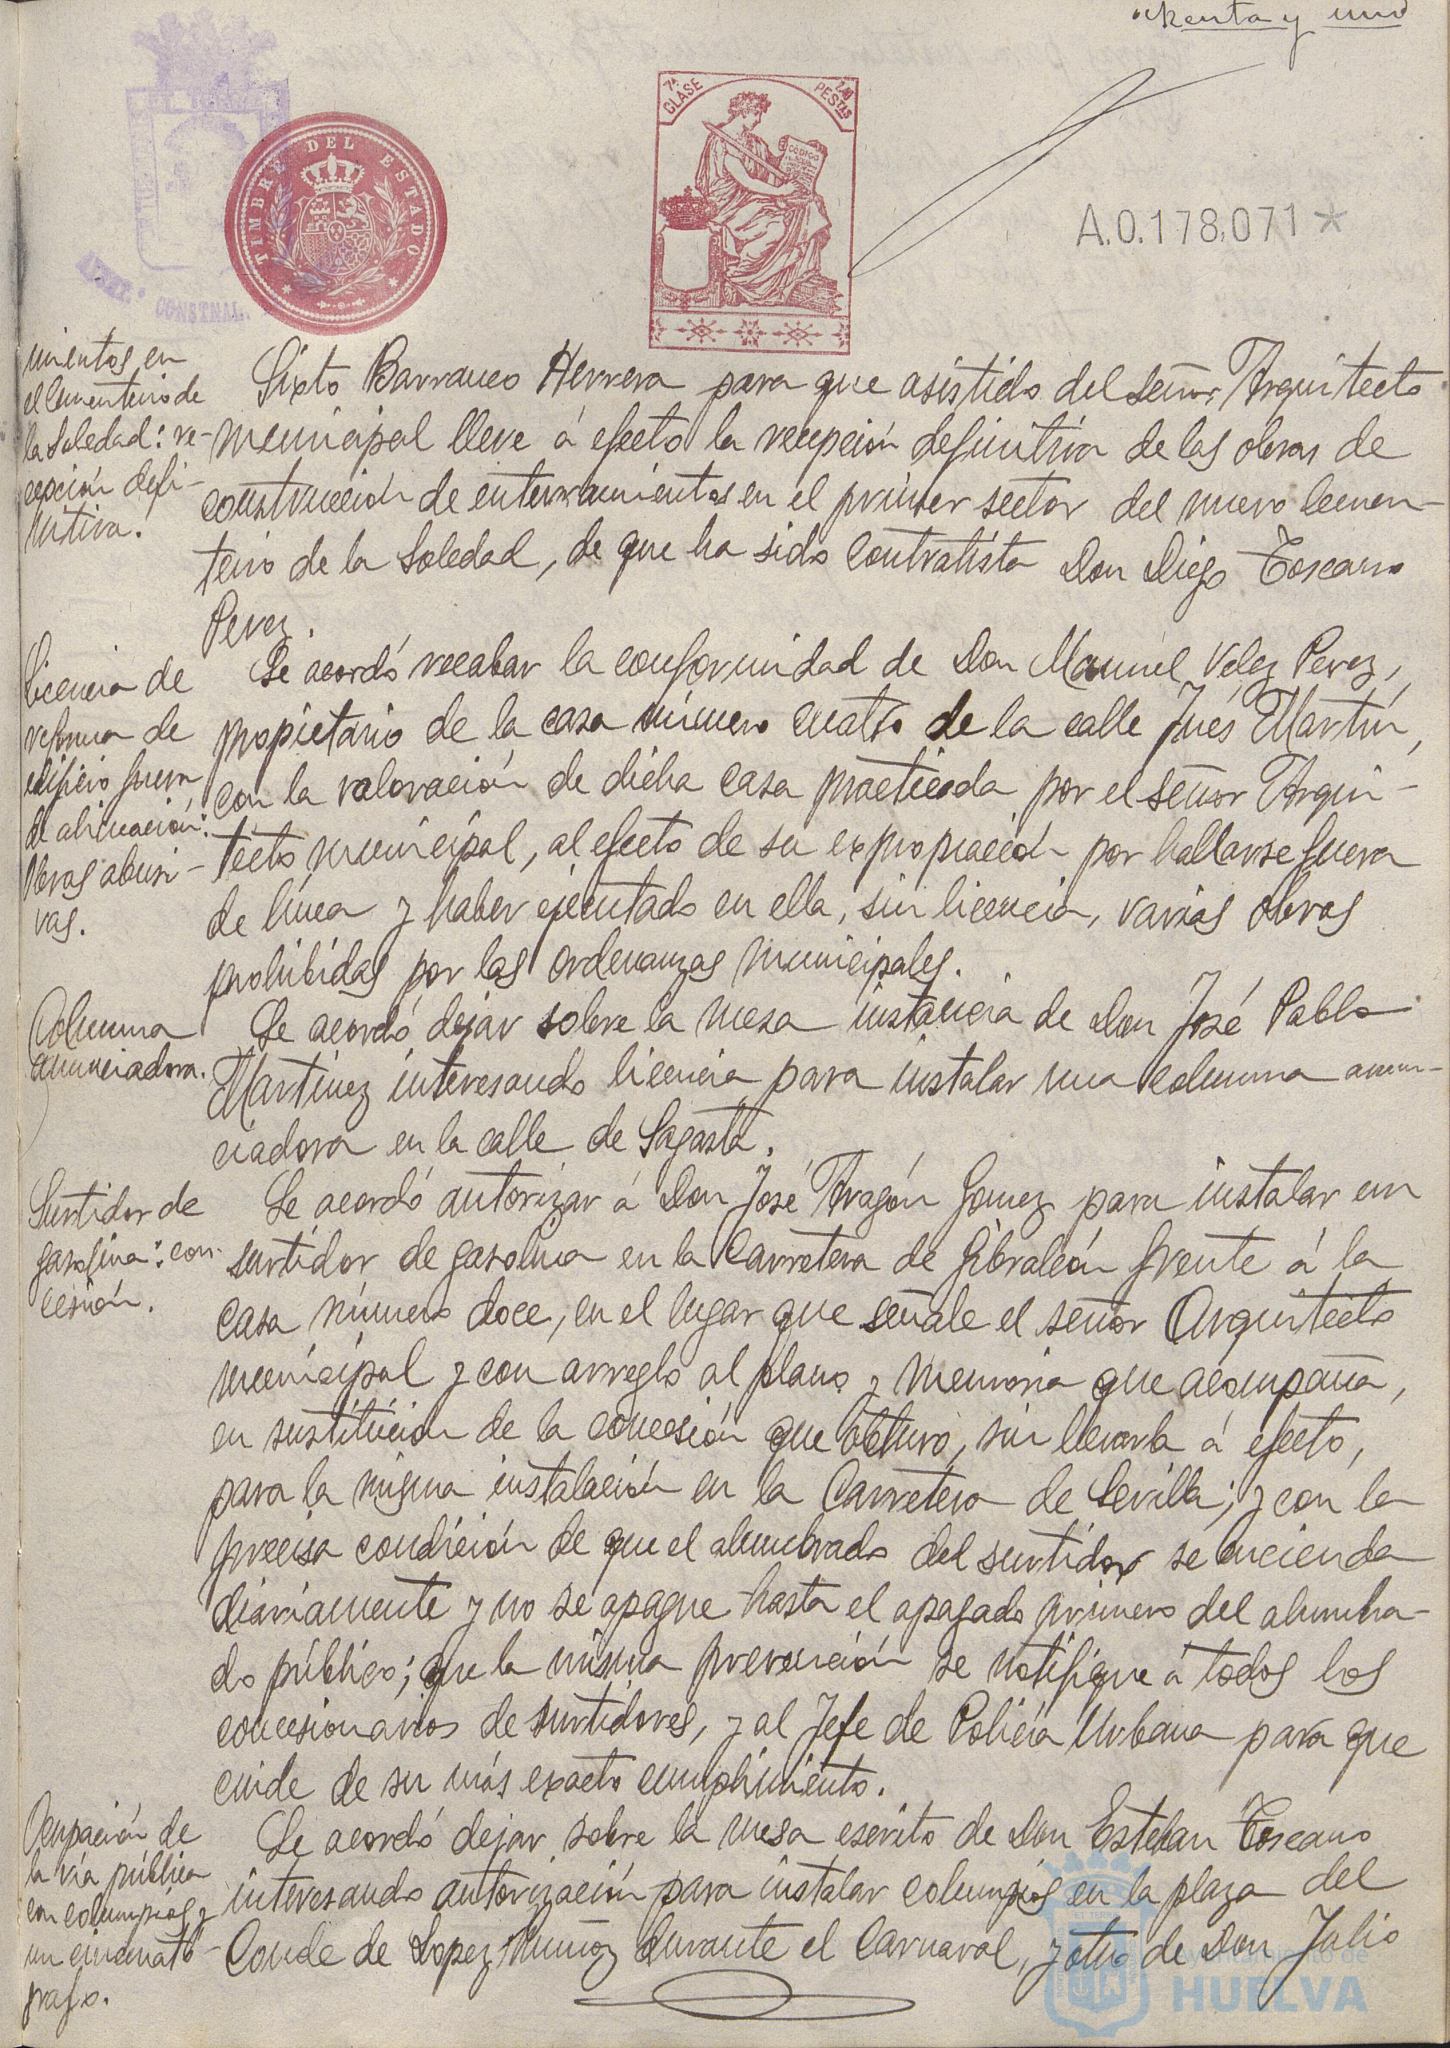 ochenta y uno
TIMBRE DEL ESTADO
7ª CLASE
2,40 PESTAS
CODIGO
A.0.178,071*
CONSTNAL.
mientos en
el Cementerio de
la Soledad: re-
cepción defi-
nitiva.
Sixto Barranco Herrera para que asistido del señor Arquitecto
municipal lleve á efecto la recepción definitiva de las obras de
construcción de enterramientos en el primer sector del nuevo Cemen-
terio de la Soledad, de que ha sido contratista Don Diego Toscano
Perez.
Licencia de
reforma de
edificio fuera
de alineación:
Obras abusi-
vas.
Se acordó recabar la conformidad de Don Manuel Velez Perez,
propietario de la casa número cuatro de la calle Inés Martín,
con la valoración de dicha casa practicada por el señor Arqui-
tecto municipal, al efecto de su expropiación por hallarse fuera
de línea y haber ejecutado en ella, sin licencia, varias obras
prohibidas por las ordenanzas municipales.
Columna
anunciadora.
Se acordó dejar sobre la mesa instancia de Don José Pablo
Martinez interesando licencia para instalar una columna anun-
ciadora en la calle de Sagasta.
Surtidor de
gasolina: con-
cesión.
Se acordó autorizar á Don José Aragón Gomez para instalar un
surtidor de gasolina en la Carretera de Gibraleón frente á la
casa número doce, en el lugar que señale el señor Arquitecto
municipal y con arreglo al plano y memoria que acompaña,
en sustitución de la concesión que obtuvo, sin llevarla á efecto,
para la misma instalación en la Carretera de Sevilla; y con la
precisa condición de que el alumbrado del surtidor se encienda
diariamente y no se apague hasta el apagado primero del alumbra-
do público; que la misma prevención se notifique á todos los
concesionarios de surtidores, y al Jefe de Policía Urbana para que
cuide de su más exacto cumplimiento.
Ocupación de
la vía pública
con columpios y
un cinemató-
grafo.
Se acordó dejar sobre la mesa escrito de Don Esteban Toscano
interesando autorización para instalar columpios en la plaza del
Conde de Lopez Muñoz durante el Carnaval, y otro de Don Julio
Ayuntamiento de
HUELVA